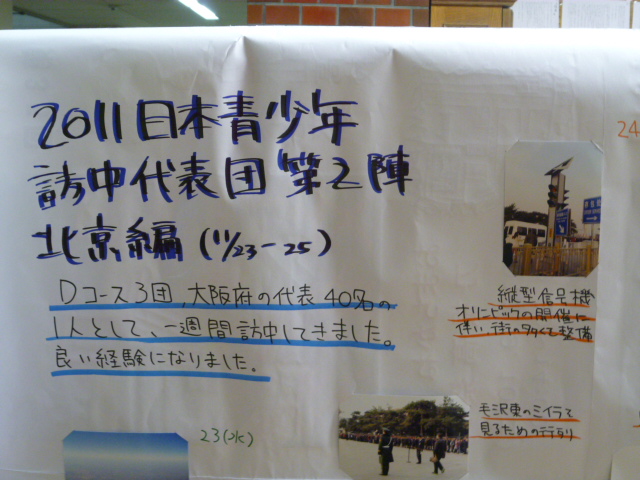 2011日本青少年
訪中代表団 第2陣
北京編 (11/23-25)
Dコース3団、大阪府の代表40名の
1人として、一週間訪中してきました。
良い経験になりました。
24
縦型信号機
オリンピックの開催に
伴い、街の多くで整備
毛沢東のミイラを
見るための行列
23(水)